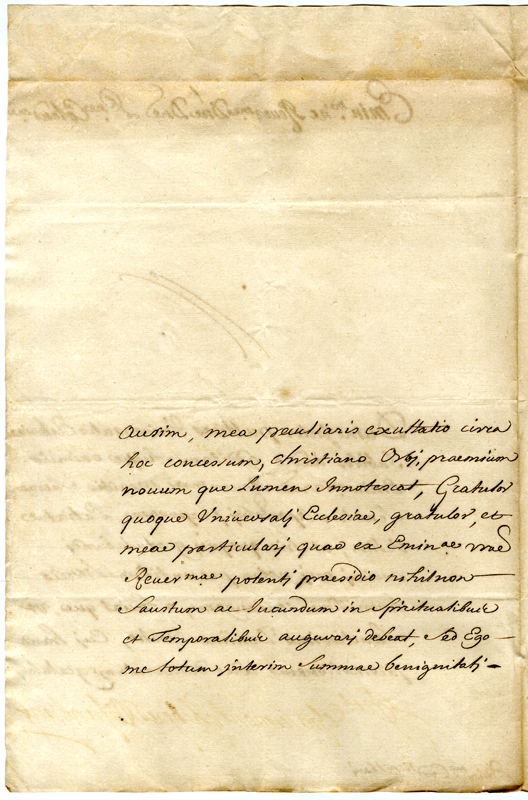 ausim, mea peculiaris exultatio circa
hoc concessum, Christiano Orbj, praemium
novum que Lumen Innotescat, Gratulor
quoque Vniversalj Ecclesiae, gratulor, et
meae particularj quae ex Eminae vrae
Reuermae potentj praesidio nihil non
faustum ac Iucundum in Spiritualibus
et Temporalibus augurarj debeat, Sed Ego
me totum jnterim Summae benignitatj